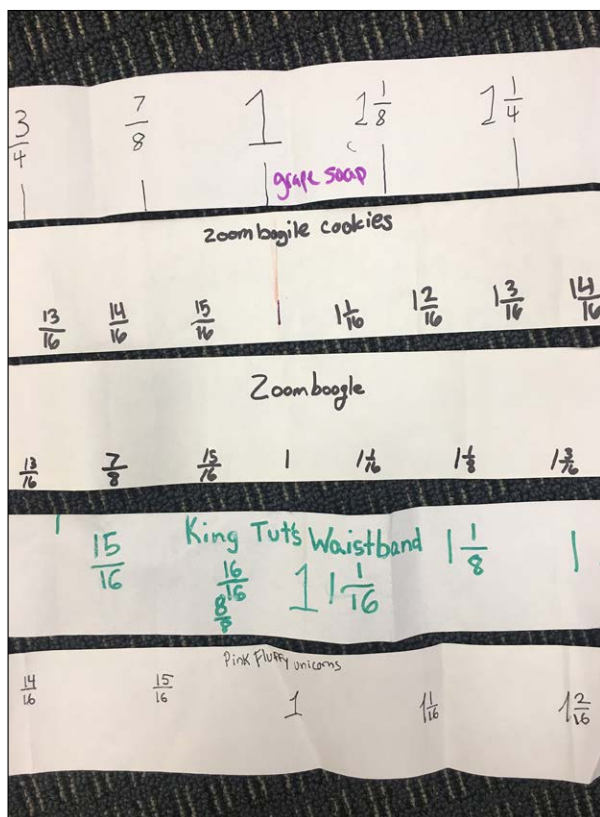 3/4 7/8 1 1 1/8 1 1/4
grape soap
zoombogile cookies
13/16 14/16 15/16 1 1 1/16 1 2/16 1 3/16 14/16
Zoomboogle
13/16 7/8 15/16 1 1 1/16 1 1/8 1 3/16
King Tut's Waistband
15/16 16/16 1 1 1/16 1 1/8 1
8/8
Pink Fluffy unicorns
14/16 15/16 1 1 1/16 1 2/16